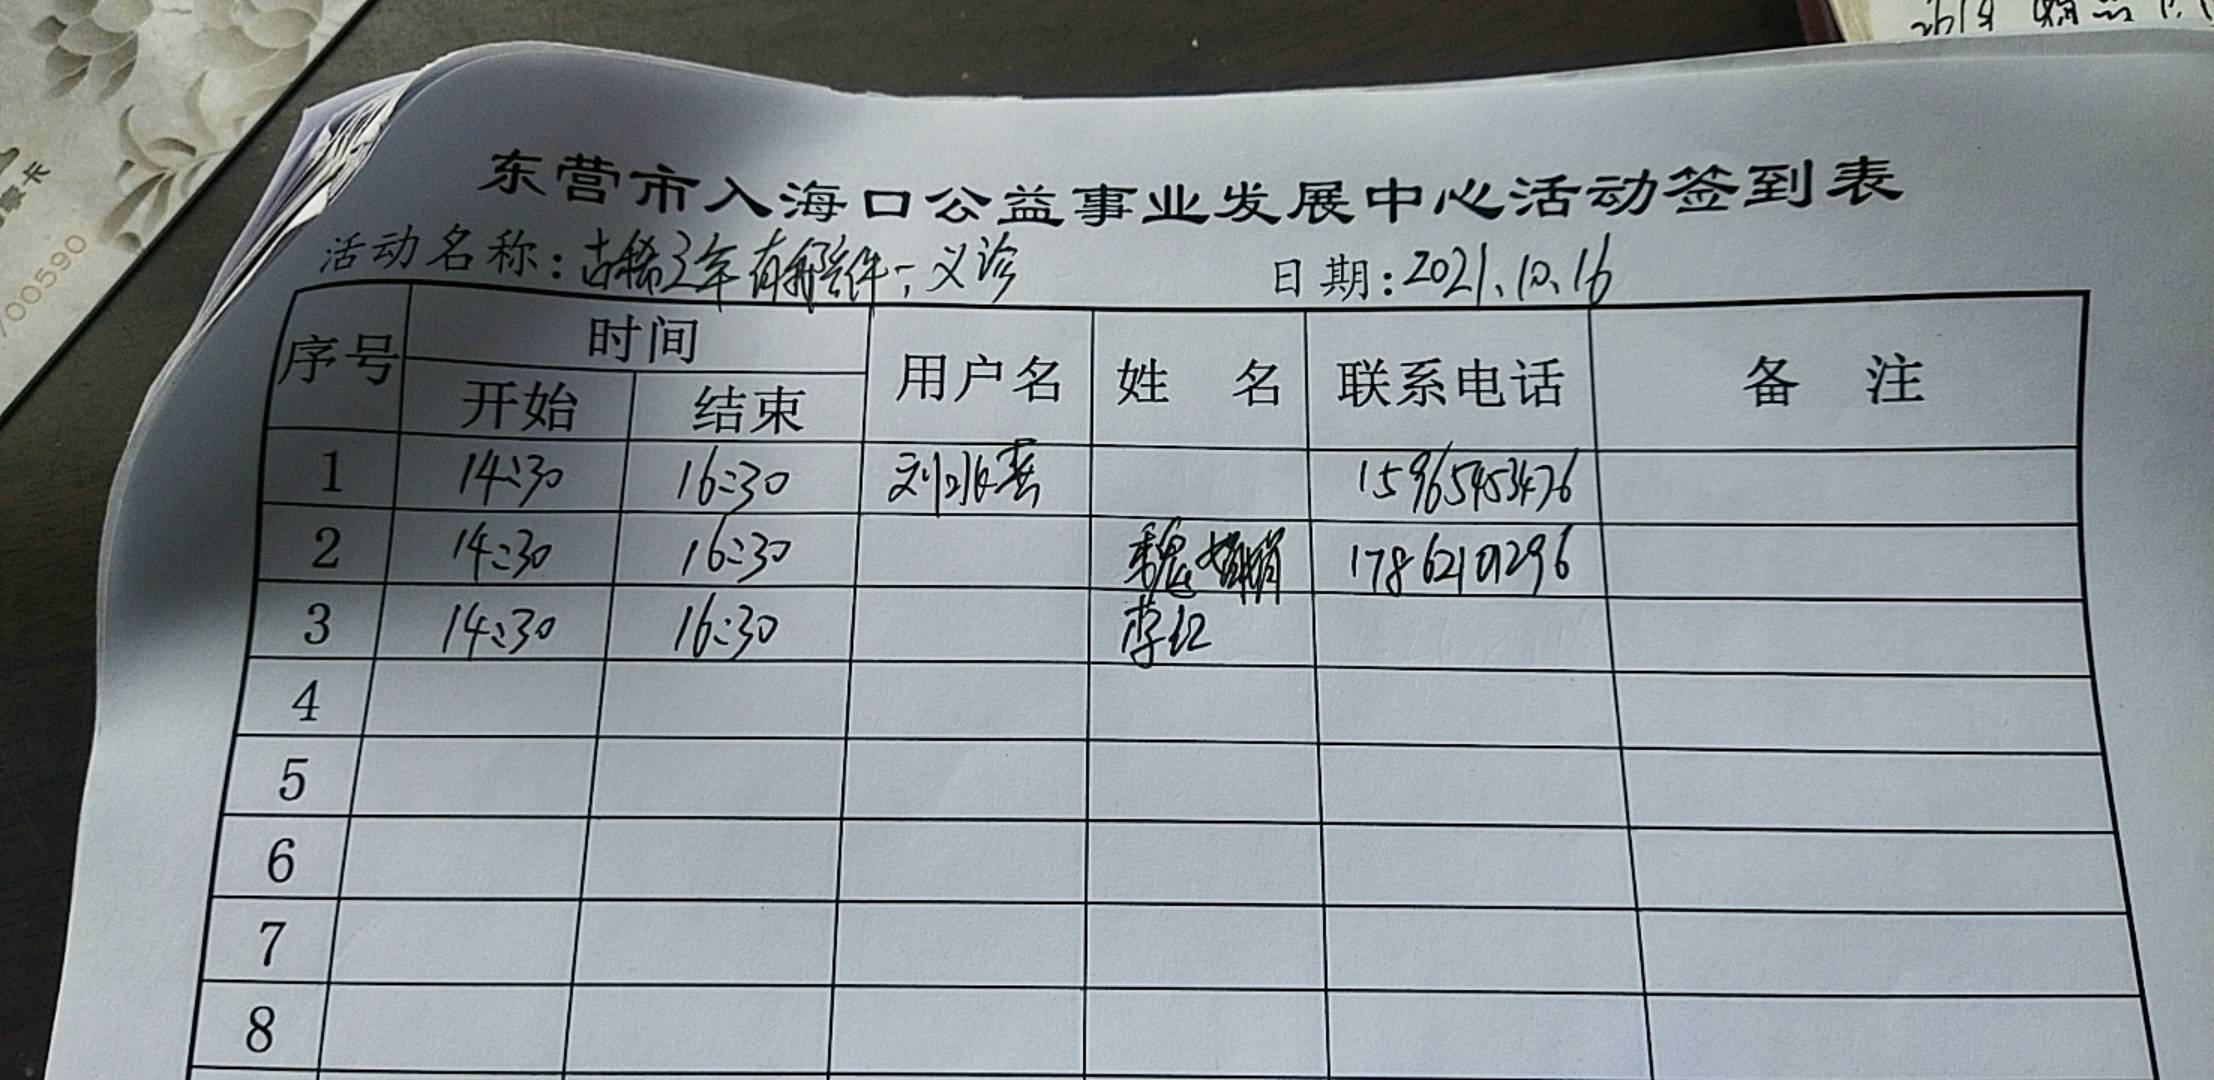 东营市入海口公益事业发展中心活动签到表
活动名称:古稀之年有陪伴-义诊 日期:2021.10.16
序号 时间 用户名 姓 名 联系电话 备 注
开始 结束
1 14:30 16:30 15965453476
2 14:30 16:30 魏娟娟
3 14:30 16:30 李红
4
5
6
7
8
700590